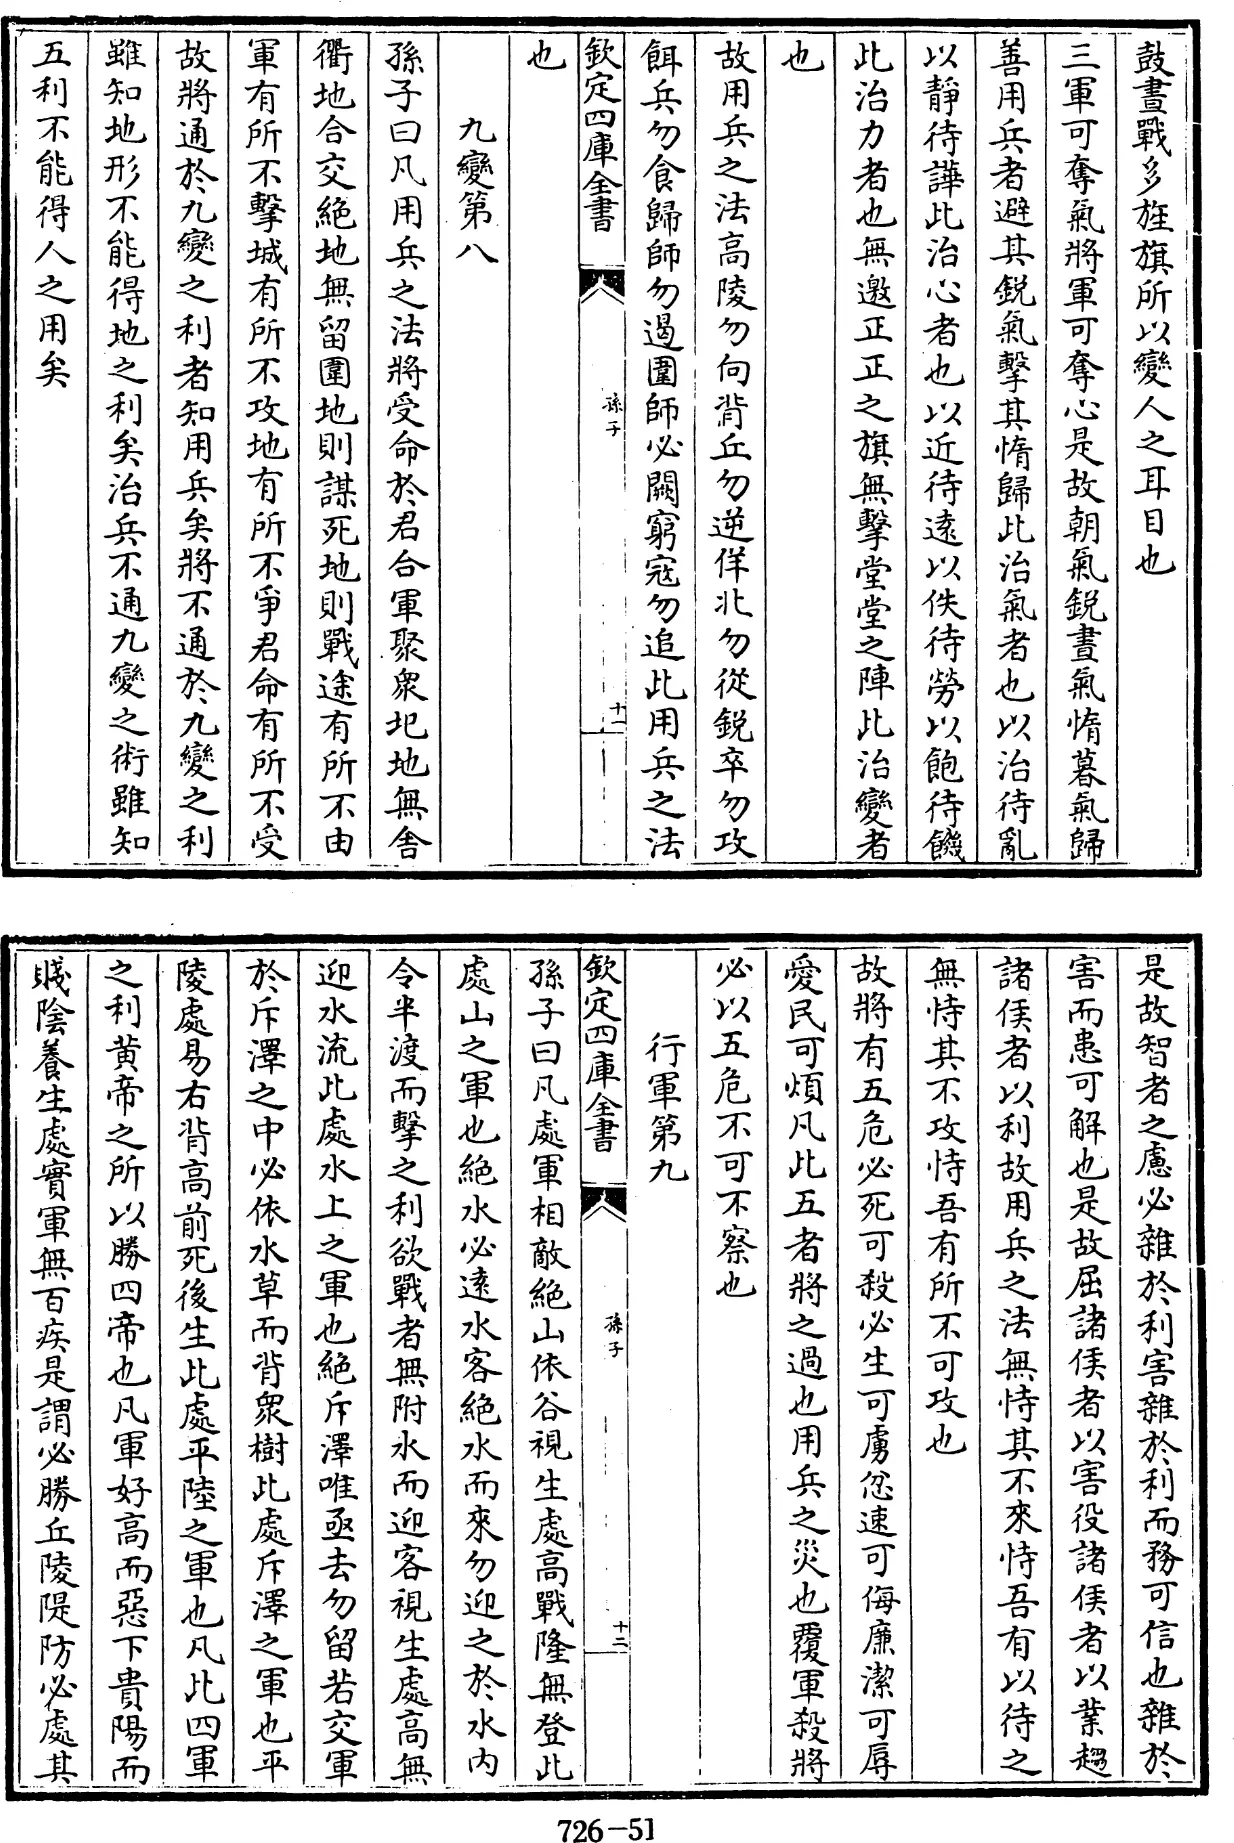 鼓晝戰多旌旗所以變人之耳目也
三軍可奪氣將軍可奪心是故朝氣銳晝氣惰暮氣歸
善用兵者避其銳氣擊其惰歸此治氣者也以治待亂
以靜待譁此治心者也以近待逺以佚待勞以飽待饑
此治力者也無邀正正之旗無擊堂堂之陣此治變者
也
故用兵之法高陵勿向背丘勿逆佯北勿從銳卒勿攻
餌兵勿食歸師勿遏圍師必闕窮宼勿追此用兵之法
欽定四庫全書
孫子
十一
也
九變第八
孫子曰凡用兵之法將受命於君合軍聚衆圮地無舍
衢地合交絶地無留圍地則謀死地則戰途有所不由
軍有所不擊城有所不攻地有所不爭君命有所不受
故將通於九變之利者知用兵矣將不通於九變之利
雖知地形不能得地之利矣治兵不通九變之術雖知
五利不能得人之用矣
是故智者之慮必雜於利害雜於利而務可信也雜於
害而患可解也是故屈諸侯者以害役諸侯者以業趨
諸侯者以利故用兵之法無恃其不來恃吾有以待之
無恃其不攻恃吾有所不可攻也
故將有五危必死可殺必生可虜忿速可侮廉潔可辱
愛民可煩凡此五者將之過也用兵之災也覆軍殺將
必以五危不可不察也
行軍第九
欽定四庫全書
孫子
十二
孫子曰凡處軍相敵絶山依谷視生處高戰隆無登此
處山之軍也絶水必逺水客絶水而來勿迎之於水内
令半渡而擊之利欲戰者無附水而迎客視生處高無
迎水流此處水上之軍也絶斥澤唯亟去勿留若交軍
於斥澤之中必依水草而背衆樹此處斥澤之軍也平
陵處易右背高前死後生此處平陸之軍也凡此四軍
之利黄帝之所以勝四帝也凡軍好高而惡下貴陽而
賤陰養生處實軍無百疾是謂必勝丘陵隄防必處其
726-51